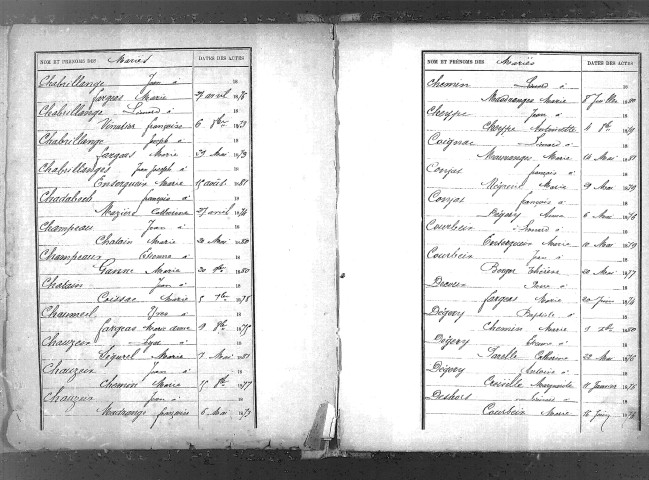 NOM ET PRÉNOMS DES Mariés DATES DES ACTES
Chabrillange Jean à 18
fargeas Marie 27 avril 1876
Chabrillange Léonard à 18
françoise 6 1873
Chabrillange Joseph à 18
fargeas Marie 29 Mai 1873
Chabrillanges Jean Joseph à 18
Marie 15 août 1881
françois à 18
Mazière Catherine 27 avril 1876
Champeau Jean à 18
Chatain Marie 20 Mai 1880
Champeaux Etienne à 18
Ganne Marie 20 1880
Chatain Jean à 18
Coissac Marie 5 7bre 1878
Chaumeil Yves à 18
fargeas Marie anne 9 8bre 1875
Chauzeix à 18
Ségurel Marie 7 Mai 1881
Chauzeix Jean à 18
Chemin Marie 15 8bre 1877
Chauzeix Jean à 18
Madrange françoise 6 Mai 1873
NOM ET PRÉNOMS DES Mariés DATES DES ACTES
Chemin Léonard à 18
Madranges Marie 8 Juillet 1880
Cheyppe Jean à 18
Cheyppe Antoinette 4 18
Coignac Léonard à 18
Madranges Marie 14 Mai 1881
Conjat françois à 18
Marie 9 Mai 1879
Conjat françois à 18
Dégery Anna 6 Mai 1876
Courbeix Léonard à 18
Marie 10 Mai 1879
Courbeix Jean à 18
20 Mai 1877
Pierre à 18
fargeas Marie 20 Juin 1876
Dégery Baptiste à 18
Chemin Marie 9 1880
Dégery à 18
Catherine 22 Mai 1876
Dégery Antoine à 18
Marguerite 11 Janvier 1876
Deshors Léonard à 18
Courbeix Marie 16 Juin 18